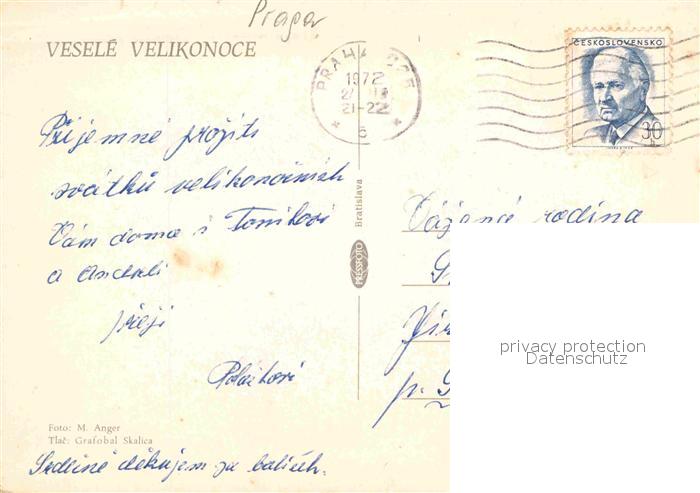 Pragar
VESELÉ VELIKONOCE
PRAHA
1972
21-22
6
ČESKOSLOVENSKO
30
Příjemné prožití
svátků velikonočních
Vám doma i Toníkovi
a Anduli
přejí
Poláčkovi
Srdečně děkujem za balíček.
Foto: M. Anger
Tlač: Grafobal Skalica
PRESSFOTO Bratislava
Vážená rodina
p.
privacy protection
Datenschutz